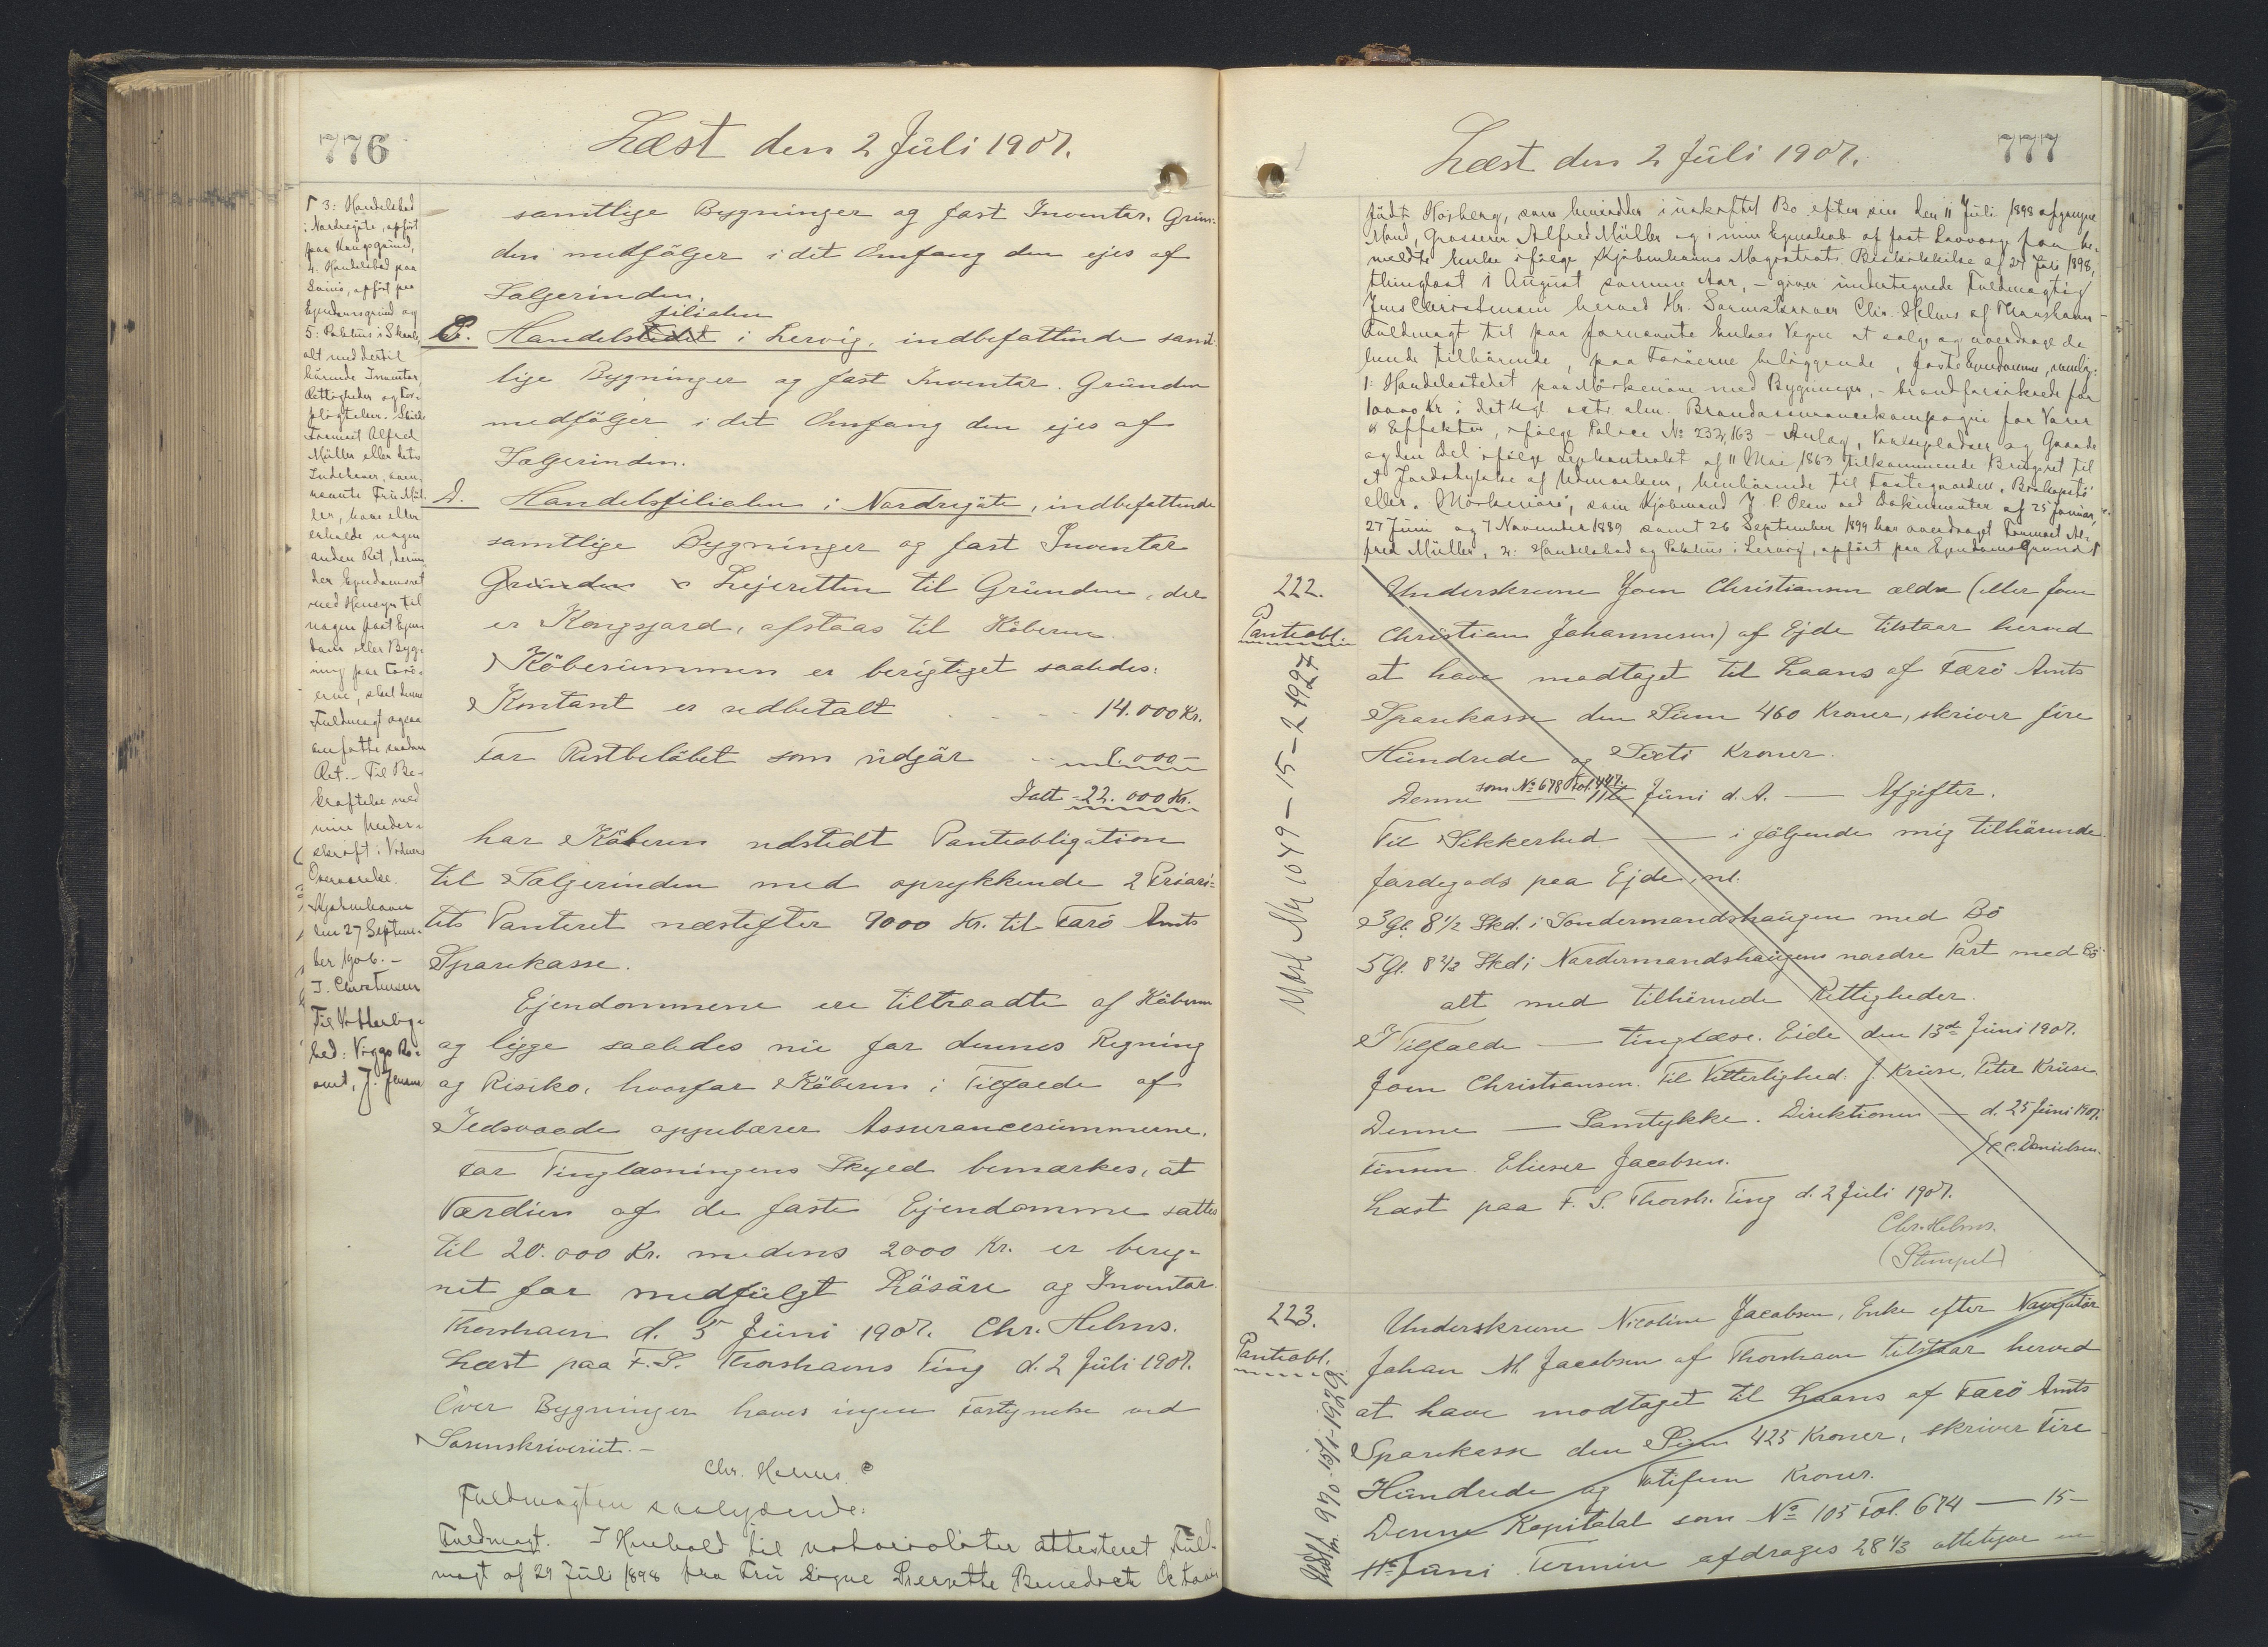 776
Læst den 2 Juli 1907.
samtlige Bygninger og fast Inventar. Grun-
den medfölger i det Omfang den ejes af
Sælgerinden.
C. Handelsfilialen i Lervig, indbefattende samt-
lige Bygninger og fast Inventar. Grunden
medfölger i det Omfang den ejes af
Sælgerinden.
D. Handelsfilialen i Nordregöte, indbefattende
samtlige Bygninger og fast Inventar
Grunden & Lejeretten til Grunden, der
er Kongsjord, afstaas til Köberen.
Köbesummen er berigtiget saaledes:
Kontant er udbetalt - - - 14.000 Kr.
For Restbelöbet som udgör - - 8.000 -
Ialt = 22.000 Kr.
har Köberen udstedt Panteobligation
til Sælgerinden med oprykkende 2 Priori-
tets Panteret næstefter 9000 Kr. til Færö Amts
Sparekasse.
Ejendommene ere tiltraadte af Köberen
og ligge saaledes nu for dennes Regning
og Risiko, hvorfor Köberen i Tilfælde af
Ildsvaade oppebærer Assurancesummerne.
For Tinglæsningens Skyld bemærkes, at
Værdien af de faste Ejendomme sættes
til 20.000 Kr. medens 2000 Kr. er bereg-
net for medfulgt Lösöre og Inventar.
Thorshavn d. 5 Juni 1907. Chr. Helms.
Læst paa F. S. Thorshavns Ting d. 2 Juli 1907.
Over Bygninger haves ingen Forsynelse ved
Sorenskriveriet. -
Chr. Helms.
Fuldmagten saalydende:
Fuldmagt. I Henhold til notarialiter attesteret Fuld-
magt af 29 Juli 1898 fra Fru Signe Pierrette Benedicte Octavia
3: Handelsbod
i Nordregöte, opfört
paa Kongsgrund,
4. Handelsbod paa
opfört paa
Ejendomsgrund og
5: Pakhus i
alt med dertil
hörende Inventar,
Rettigheder og For-
pligtelser. Skulde
Firmaet Alfred
Müller eller dets
Indehaver, oven-
nævnte Fru Mül-
ler, have eller
erholde nogen
anden Ret, herun-
der Ejendomsret
med Hensyn til
nogen fast Ejen-
dom eller Byg-
ning paa Færö-
erne, skal denne
Fuldmagt ogsaa
omfatte saadan
Ret. - Til Be-
kræftelse med
min Under-
skrift i Vidners
Overværelse.
Kjøbenhavn
den 27 Septem-
ber 1906. -
J. Christensen
Til Vitterlig-
hed: Viggo
J. Jensen
777
Læst den 2 Juli 1907.
födt Norberg, som hensidder i uskiftet Bo efter sin den 11 Juli 1898 afgangne
Mand, Grosserer Alfred Müller og i min Egenskab af fast Lavværge for be-
meldte Enke ifölge Kjöbenhavns Magistrats Beskikkelse af 27 Juli 1898,
thinglæst 1 August samme Aar, - giver undertegnede Fuldmægtig
Jens Christensen herved Hr. Sorenskriver Chr. Helms af Thorshavn
Fuldmagt til paa fornævnte Enkes Vegne at sælge og overdrage de
hende tilhörende, paa Færöerne beliggende, faste Ejendomme, nemlig:
1: Handelsstedet paa Mörkenöre med Bygninger, - brandforsikrede for
10000 Kr i det kgl. octr. alm. Brandassurancekompagni for Varer
& Effekter, ifölge Police No 232,163 - Anlæg, Pladser og Gaarde
og den Del ifölge Lejekontrakt af 11 Mai 1863 tilkommende Brugsret til
et Jordstykke af Udmarken, henhörende til Fæstegaarden,
eller "Mörkenöre", som Kjöbmand J. P. Olsen ved Dokumenter af 25 Januar,
27 Juni og 7 November 1889 samt 26 September 1899 har overdraget Firmaet Al-
fred Müller, 2: Handelsbod og Pakhus i Lervig, opfört paa Ejendomsgrund
222.
Panteobl.
Underskrevne Joen Christiansen ældre (eller Joen
Christian Johannesen) af Ejde tilstaar herved
at have modtaget til Laans af Færö Amts
Sparekasse den Sum 460 Kroner, skriver fire
Hundrede og Sixti Kroner.
Denne som No 678 Fol. 447. 11te Juni d. A. — Afgifter.
Til Sikkerhed — i fölgende mig tilhörende
Jordegods paa Ejde, nl.
3 Gl. 8 1/2 Skd. i Söndermandshaugen med Bö
5 Gl. 8 2/3 Skd i Nordermandshaugens nordre Part med Bö
alt med tilhörende Rettigheder.
I Tilfælde — tinglæse. Eide den 13de Juni 1907.
Joen Christiansen. Til Vitterlighed: J. Kruse, Peter Kruse.
Denne — Samtykke. Direktionen — d. 25 Juni 1907.
C. C. Danielsen.
Finsen. Elieser Jacobsen.
Læst paa F. S. Thorsh. Ting d. 2 Juli 1907.
Chr. Helms.
(Stempel)
223.
Panteobl.
Underskrevne Nicoline Jacobsen, Enke efter Navigatör
Johan M. Jacobsen af Thorshavn tilstaar herved
at have modtaget til Laans af Færö Amts
Sparekasse den Sum 425 Kroner, skriver Fire
Hundrede og Totifem Kroner.
Denne Kapitatal som No 105 Fol. 674 — 15 -
11te Juni Termin afdrages 28 1/3 ottetyve